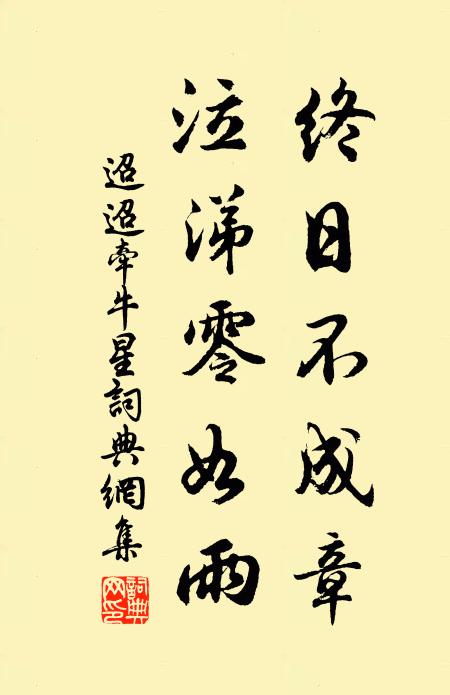 終日不成章
泣涕零如雨
迢迢牽牛星詞典網集
詞典
网印